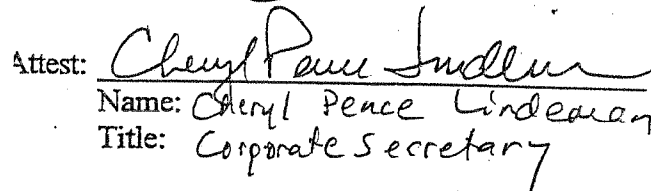 Attest: Cheryl Pence Lindeman
Name: Cheryl Pence Lindeman
Title: Corporate Secretary